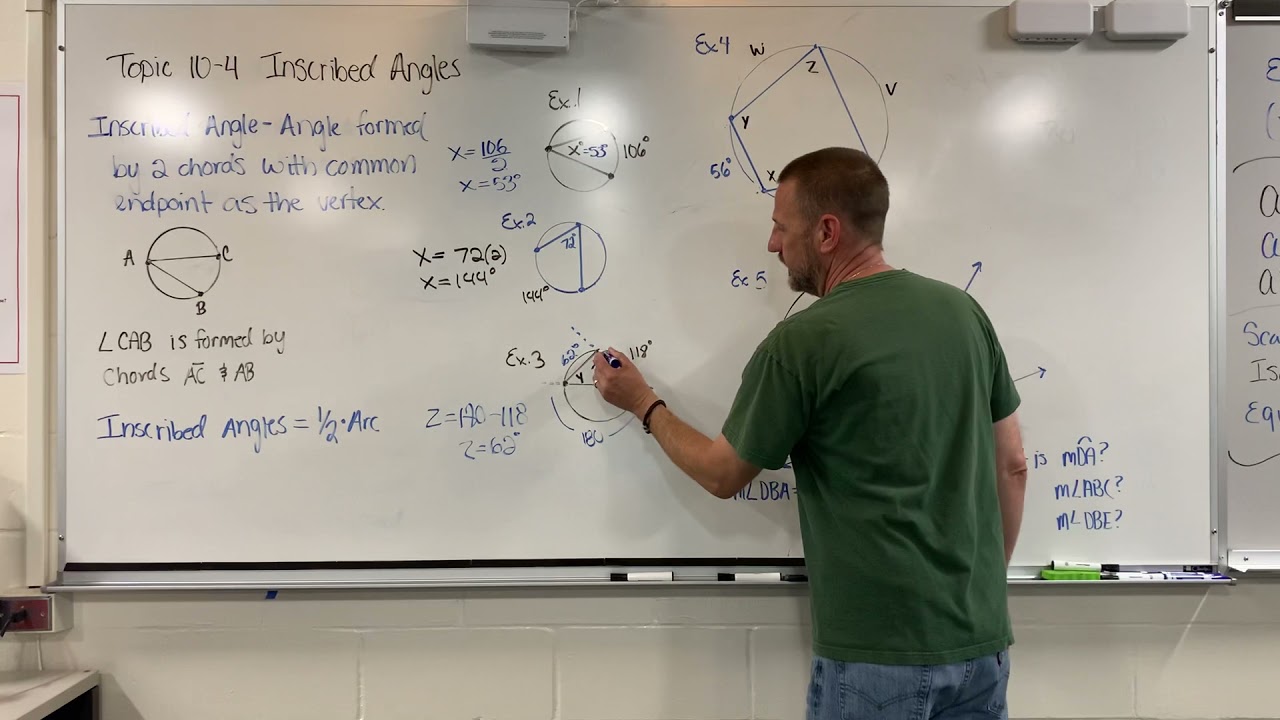 Topic 10-4 Inscribed Angles
Inscribed Angle- Angle formed
by 2 chords with common
endpoint as the vertex.
A
C
B
∠CAB is formed by
Chords AC & AB
Inscribed Angles = 1/2 · Arc
Ex.1
x = 106/2
x = 53°
x° = 53°
106°
Ex.2
x = 72(2)
x = 144°
72°
144°
Ex.3
62°
118°
y
180
Z = 180 - 118
Z = 62°
Ex4
W
Z
V
y
56°
x
Ex 5
m∠DBA =
is mDA?
m∠ABC?
m∠DBE?
E
(
a
a
a
Sca
Iso
Equ